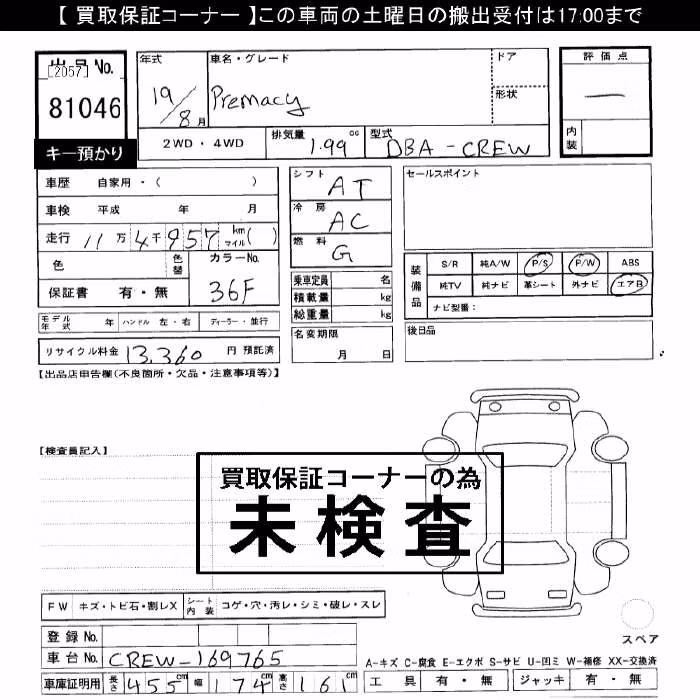 【 買取保証コーナー 】この車両の土曜日の搬出受付は17:00まで
出品 No.
[2057]
81046
キー預かり
年式 車名・グレード ドア
19/8月 Premacy 形状
2WD ・ 4WD 排気量 1.99 cc 型式 DBA-CREW
評価点
—
内装
車歴 自家用 ・( )
車検 平成 年 月
走行 11万 4千 957 km マイル( )
色 色替 カラーNo.
保証書 有・無 36F
モデル年式 年 ハンドル 左・右 ディーラー・並行
リサイクル料金 13,360 円 預託済
シフト AT
冷房 AC
燃料 G
乗車定員 名
積載量 kg
総重量 kg
名変期限
月 日
セールスポイント
装備品 S/R 純A/W P/S P/W ABS
純TV 純ナビ 革シート 外ナビ エアB
ナビ型番：
後日品
【出品店申告欄(不良箇所・欠品・注意事項等)】
【検査員記入】
買取保証コーナーの為
未検査
FW キズ・トビ石・割レX シート内装 コゲ・穴・汚レ・シミ・破レ・スレ
登録 No.
車台 No. CREW-169765
車庫証明用 長さ 455 cm 幅 174 cm 高さ 161 cm
スペア
A-キズ C-腐食 E-エクボ S-サビ U-凹ミ W-補修 XX-交換済
工具 有・無 ジャッキ 有・無